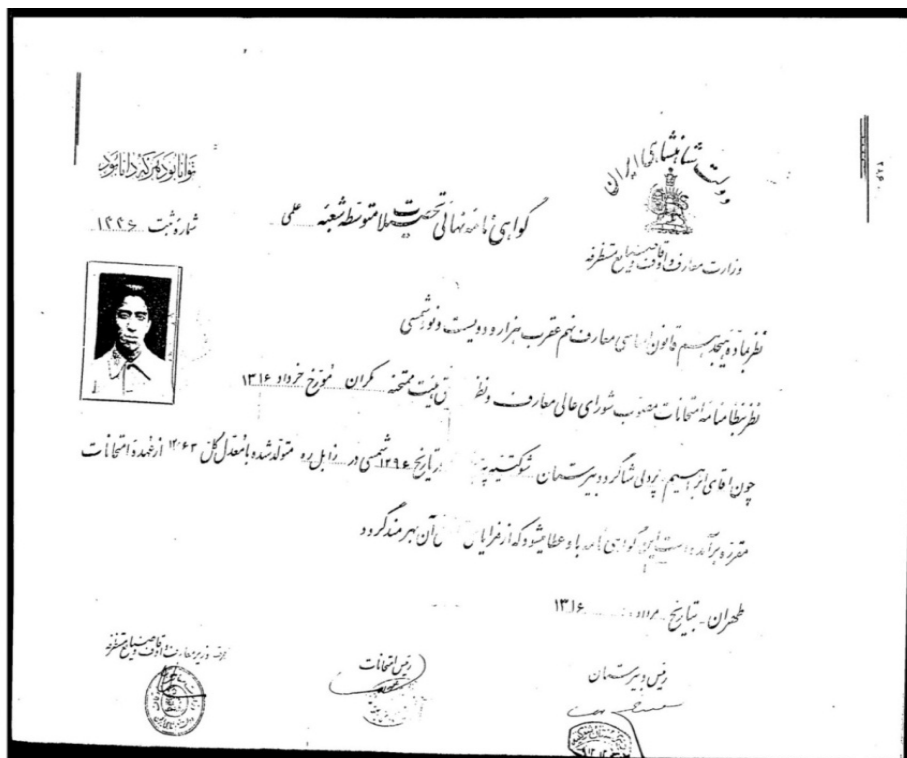 دولت شاهنشاهی ایران
وزارت معارف و اوقاف و صنایع مستظرفه
توانا بود هر که دانا بود
شماره ثبت ۱۴۴۶
گواهی نامه نهائی تحصیلات متوسطه شعبه علمی
نظر بماده هیجدهم قانون اساسی معارف نهم عقرب هزار و دویست و نود شمسی
نظر بنظامنامه امتحانات مصوب شورای عالی معارف و نظر هیئت ممتحنه مورخ خرداد ۱۳۱۶
چون آقای ابراهیم شاگرد دبیرستان شوکتیه تاریخ ۱۲۹۶ شمسی در زابل متولد شده با معدل کل از عهده امتحانات
مقرره برآمده است این گواهی نامه باو عطا میشود که از مزایای آن بهرمند گردد
طهران - بتاریخ ۱۳۱۶
رئیس دبیرستان
رئیس امتحانات
وزیر معارف و اوقاف و صنایع مستظرفه